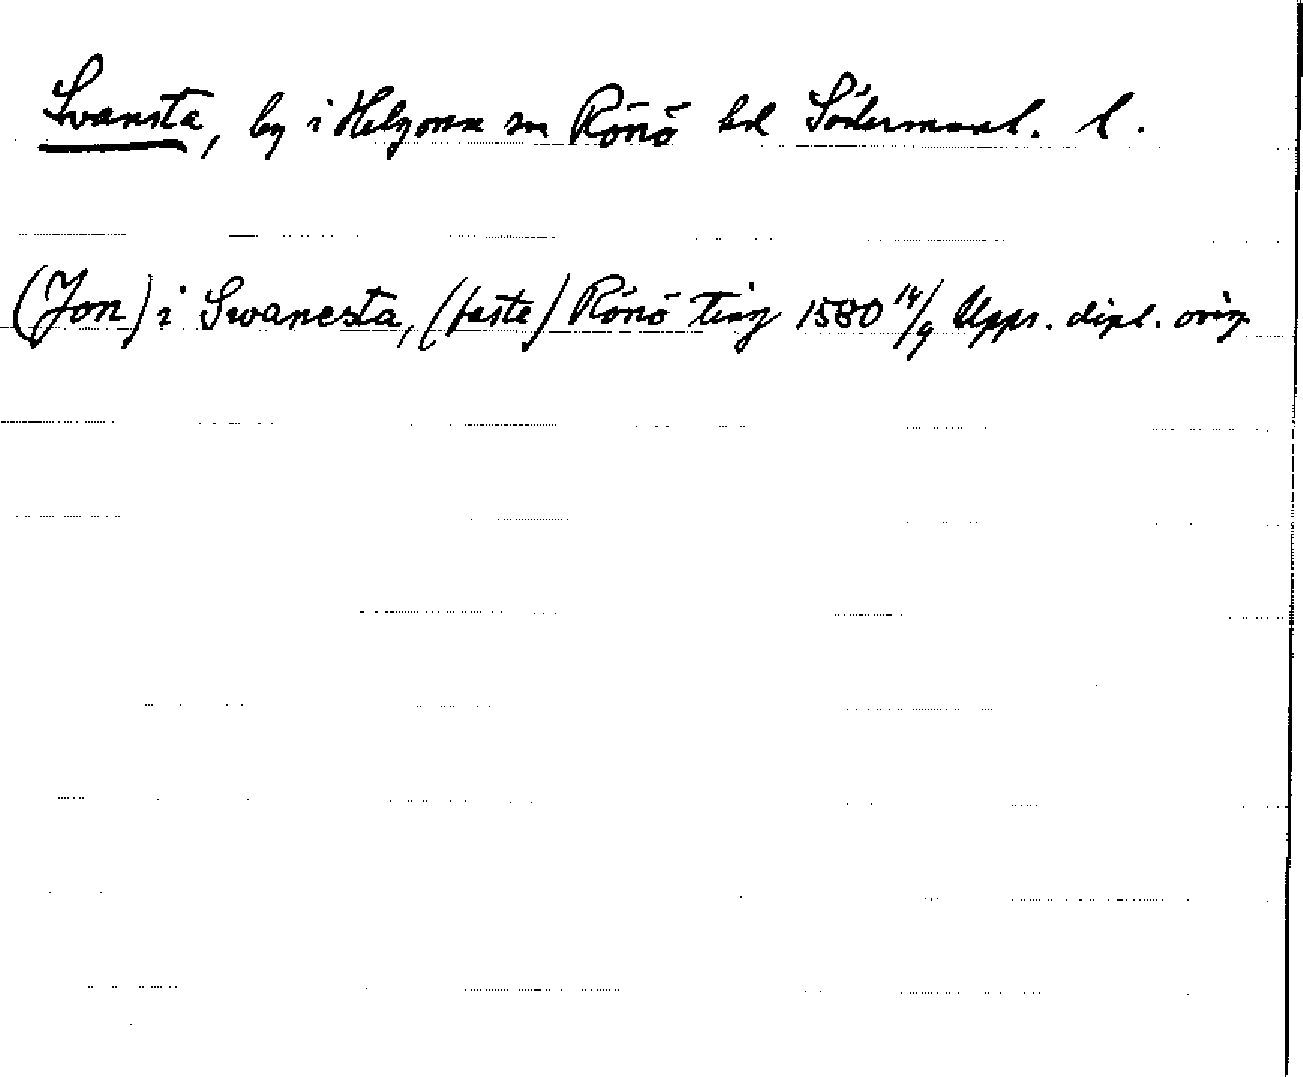 Svansta, by i Helgona sn Rönö hd Södermanl. l.
(Jon) i Swanesta, (faste) Rönö ting 1580 14/9 Upps. dipl. orig